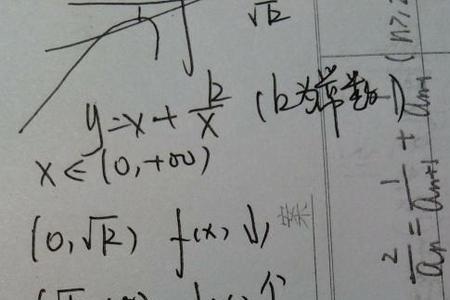 √k
y=x+k/x (k为常数)
x∈(0,+∞)
(0,√k) f(x)↓
2/an=1/an+1+
(n≥2